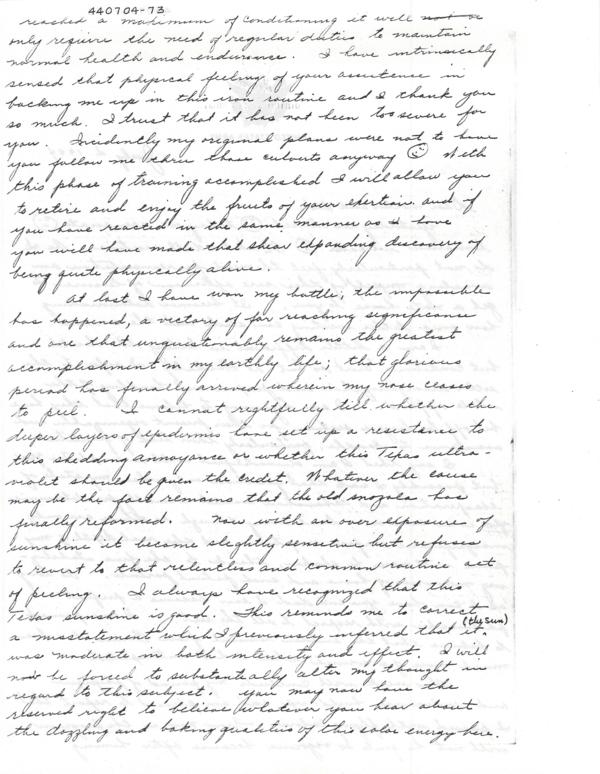 440704-73
reached a maximum of conditioning it will not be
only require the need of regular duties to maintain
normal health and endurance. I have intrinsically
sensed that physical feeling of your assistence in
backing me up in this iron routine and I thank you
so much. I trust that it has not been too severe for
you. Incidently my original plans were not to have
you follow me thru those culverts anyway ☺ With
this phase of training accomplished I will allow you
to retire and enjoy the fruits of your exertion and if
you have reacted in the same manner as I have
you will have made that shear expanding discovery of
being quite physically alive.
At last I have won my battle; the impossible
has happened, a victory of far reaching significance
and one that unquestionably remains the greatest
accomplishment in my earthly life; that glorious
period has finally arrived wherein my nose ceases
to peel. I cannot rightfully tell whether the
deeper layers of epidermis have set up a resistance to
this shedding annoyance or whether this Texas ultra-
violet should be given the credit. Whatever the cause
may be the fact remains that the old snozola has
finally reformed. Now with an over exposure of
sunshine it become slightly sensitive but refuses
to revert to that relentless and common routine act
of peeling. I always have recognized that this
Texas sunshine is good. This reminds me to correct
a misstatement which I previously inferred that it (thy sun)
was moderate in both intensity and effect. I will
now be forced to substantially alter my thought in
regard to this subject. You may now have the
reserved right to believe whatever you hear about
the dazzling and baking qualities of this solar energy here.